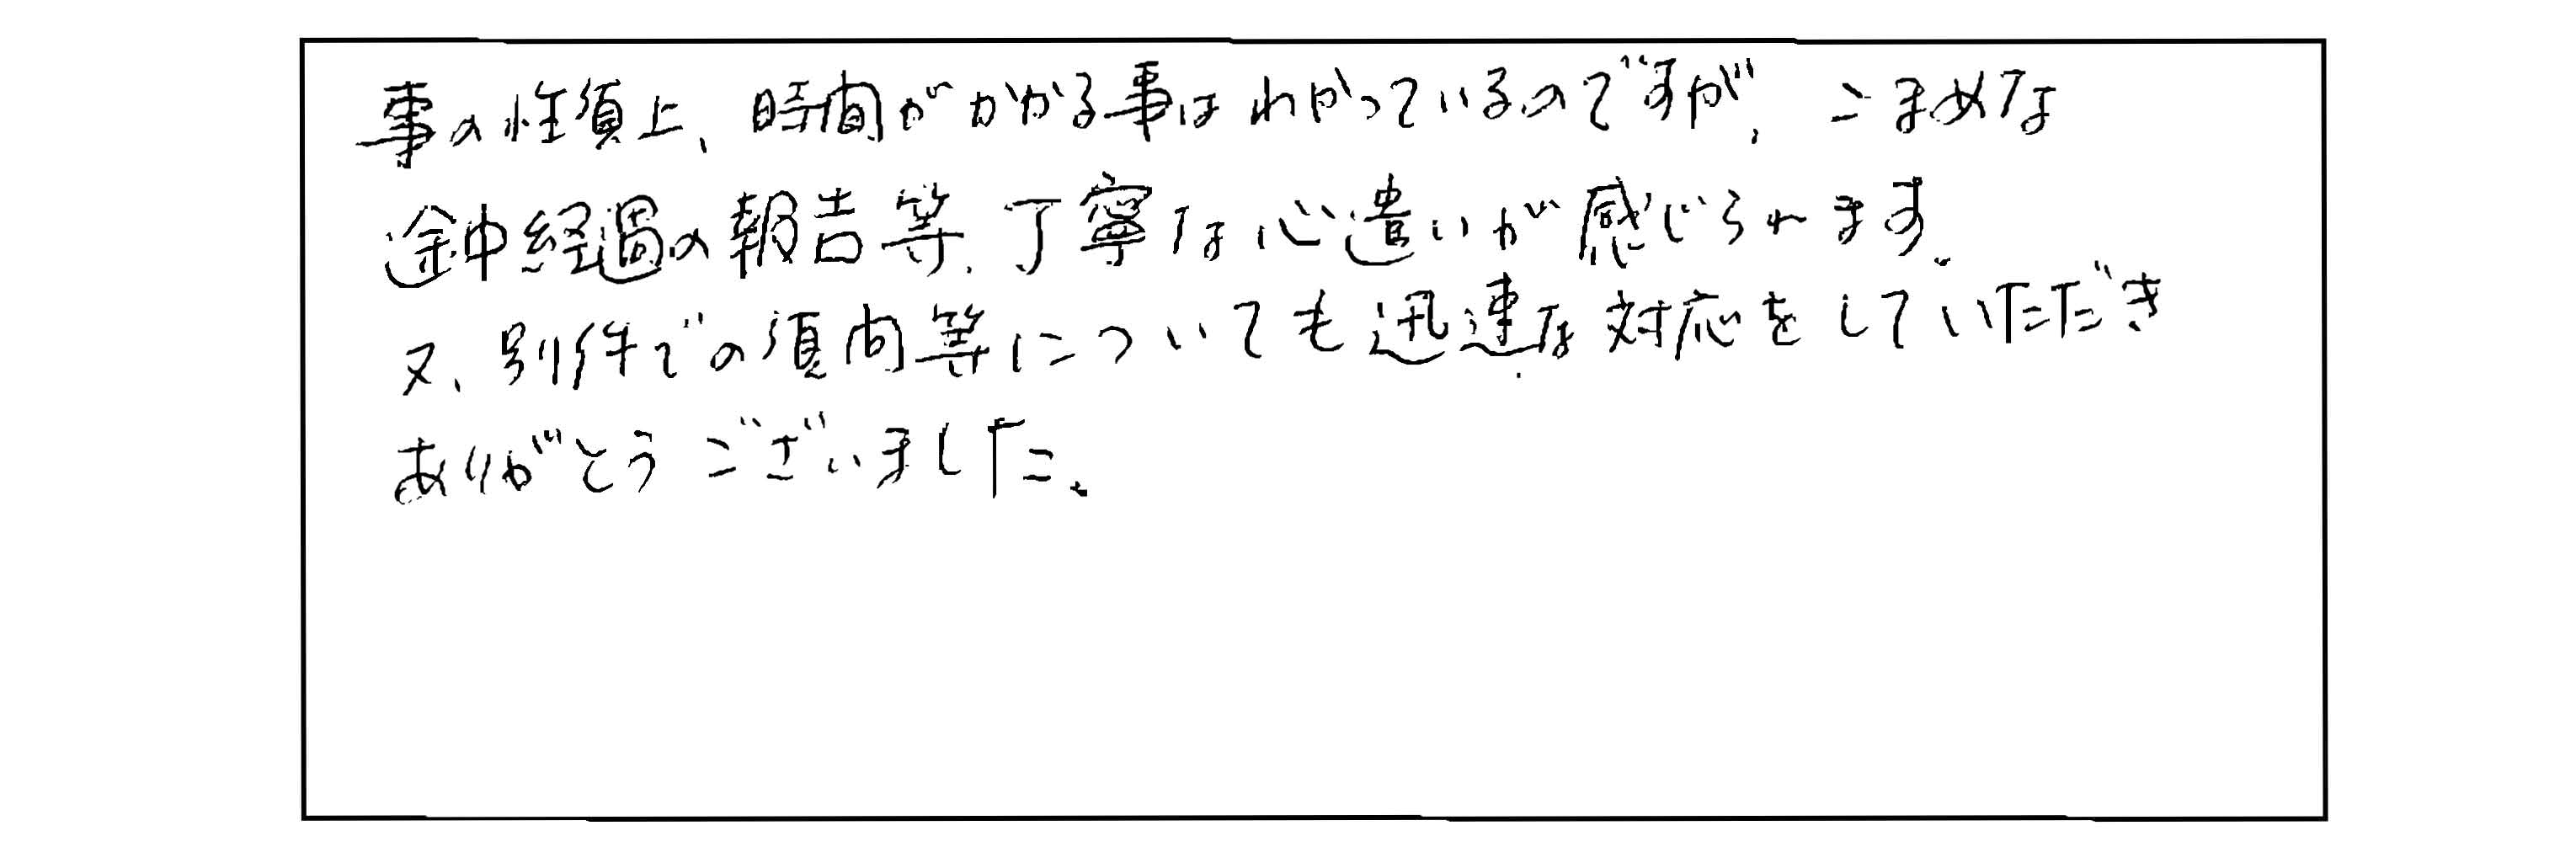 事の性質上、時間がかかる事はわかっているのですが、こまめな
途中経過の報告等、丁寧な心遣いが感じられます。
又、別件での質問等についても迅速な対応をしていただき
ありがとうございました。